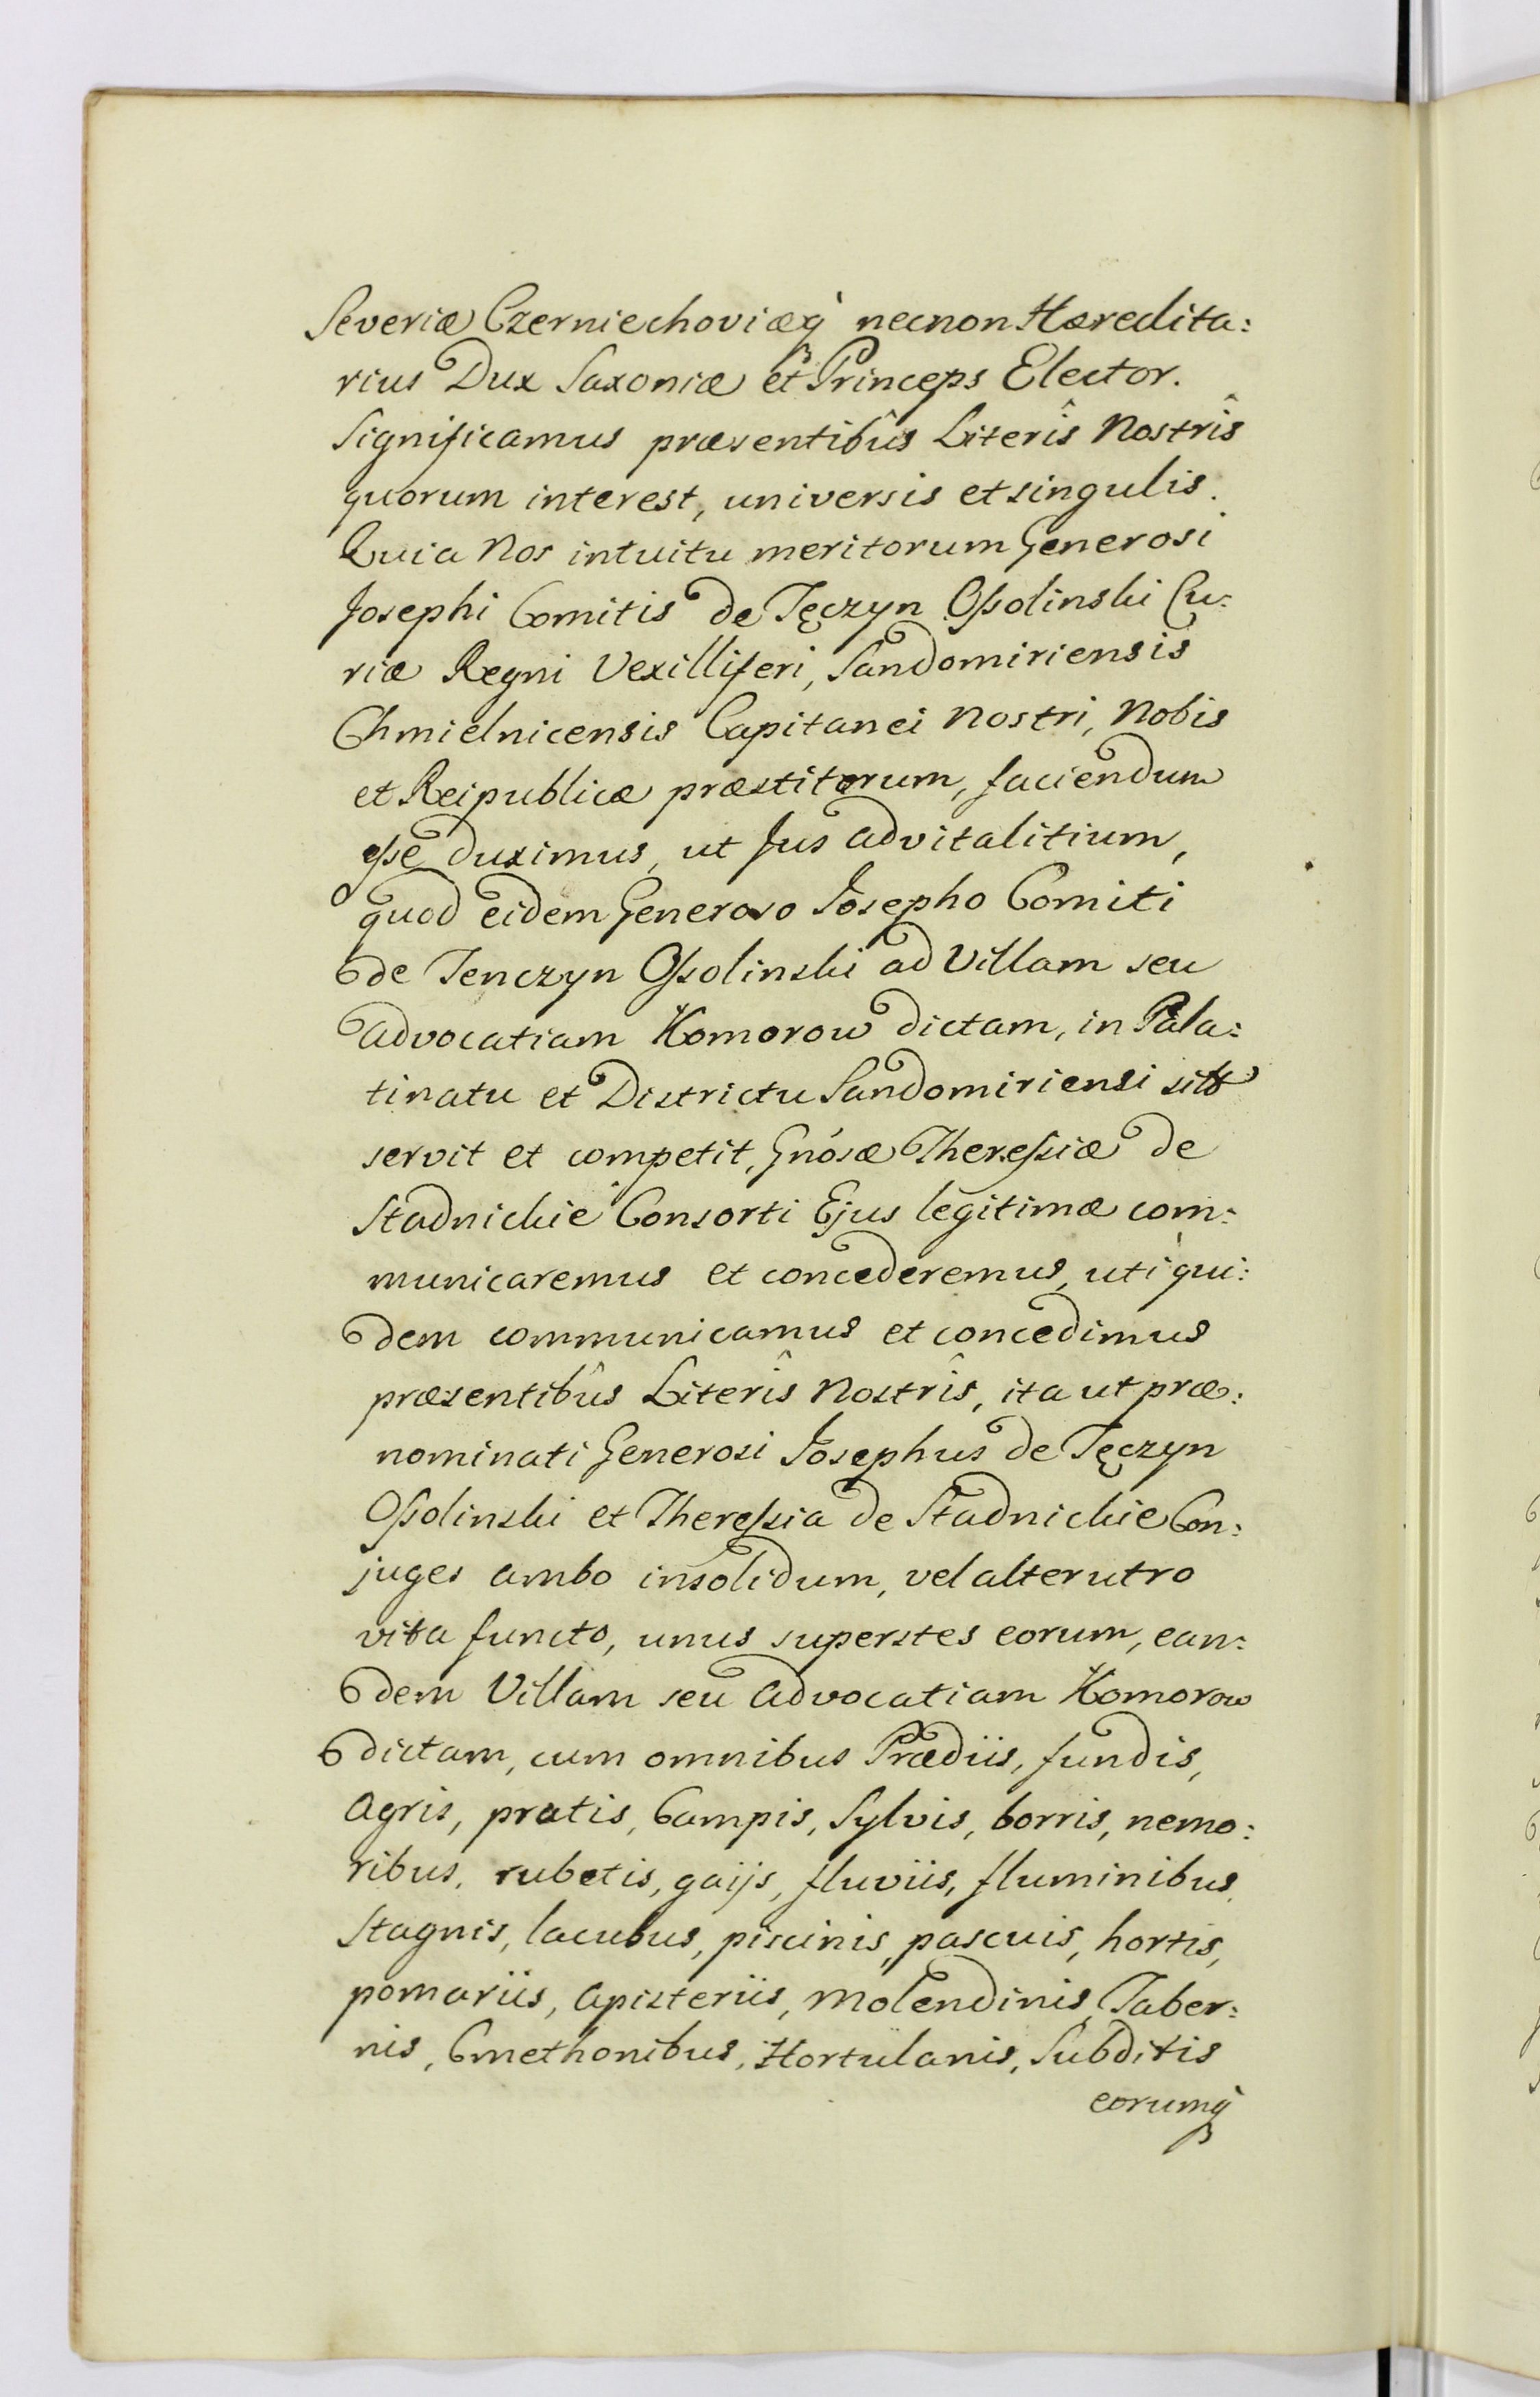 Severiæ Czerniechoviæq̀ necnon Hæredita:
rius Dux Saxoniæ et Princeps Elector.
Significamus præsentibûs Literîs Nostrîs
quorum interest, universis et singulis.
Quia Nos intuitu meritorum Generosi
Josephi Comitis de Tęczyn Ossolinski Cu:
riæ Regni Vexilliferi, Sandomiriensis
Chmielnicensis Capitanei Nostri, Nobis
et Reipublicæ præstitorum, faciendum
esse duximus, ut Jus advitalitium,
quod eidem Generoso Josepho Comiti
de Tenczyn Ossolinski ad Villam seu
advocatiam Komorow dictam, in Pala:
tinatu et Districtu Sandomiriensi
servit et competit, Gnósæ Theressiæ de
Stadnickie Consorti Ejus legitimæ com:
municaremus et concederemus, uti qui:
dem communicamus et concedimus
præsentibûs Literîs Nostrîs, ita ut præ:
nominati Generosi Josephus de Tęczyn
Ossolinski et Theressia de Stadnickie Con:
juges ambo insolidum, vel alterutro
vita functo, unus superstes eorum, ean:
dem Villam seu advocatiam Komorow
dictam, cum omnibus Prædiis, fundis,
Agris, pratis, Campis, Sylvis, borris, nemo:
ribus, rubetis, gaijs, fluviis, fluminibus,
Stagnis, lacubus, piscinis, pascuis, hortis,
pomariis, Apisteriis, Molendinis, Taber:
nis, Cmethonibus, Hortulanis, Subditis
eorumq̀